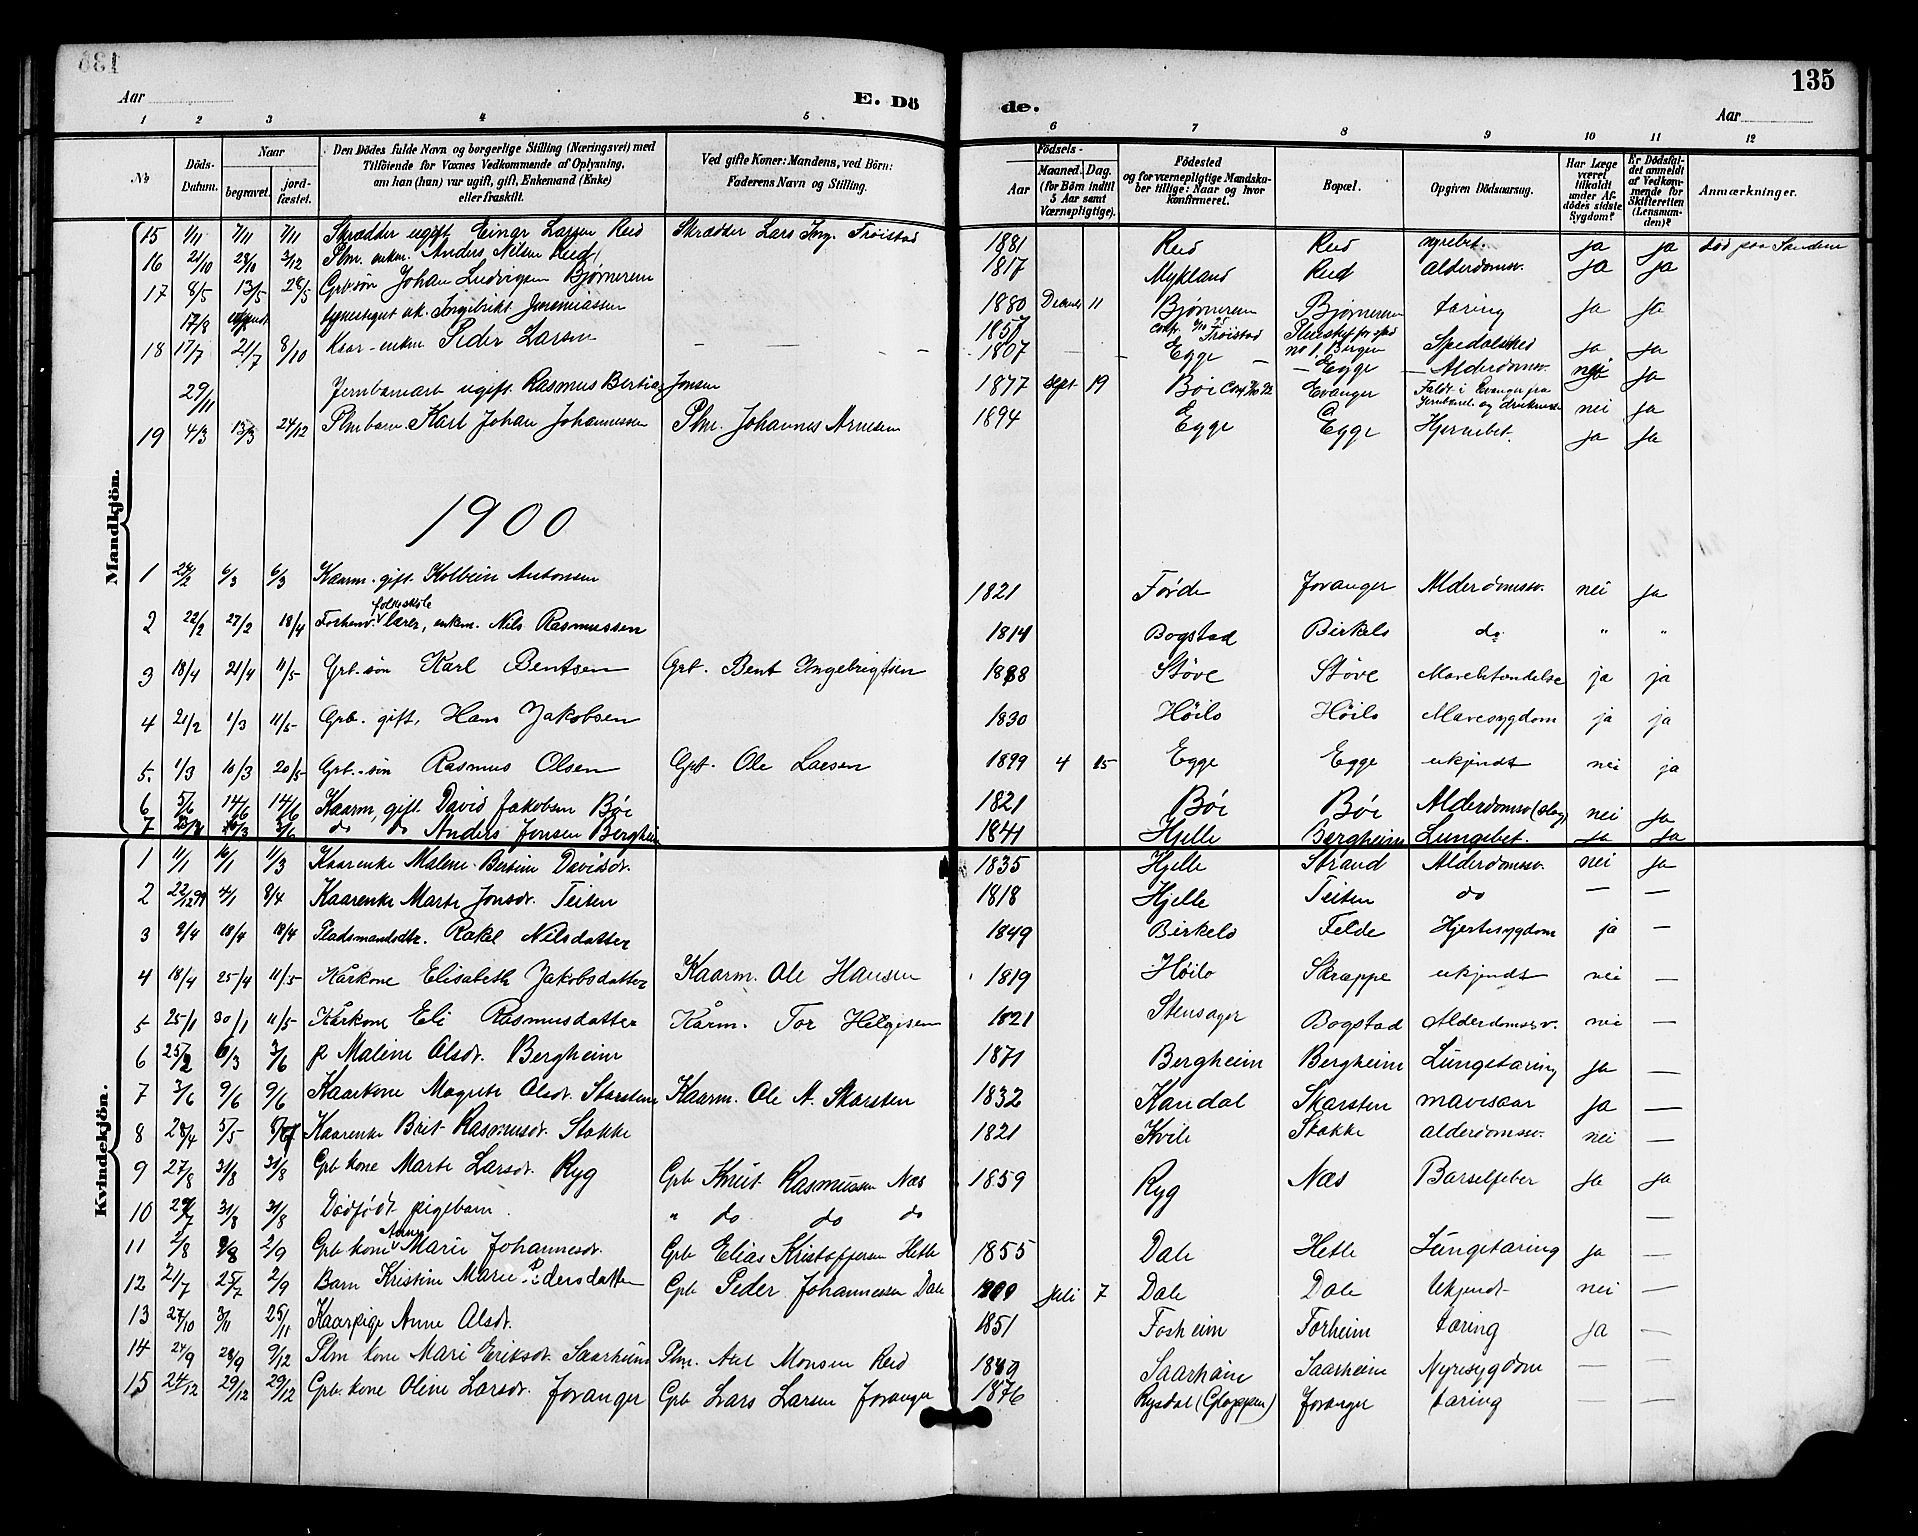 135
Aar
E. Döde.
Aar
1 2 3 4 5 6 7 8 9 10 11 12
No
Döds-Datum.
Naar
begravet.
jordfæstet.
Den Dödes fulde Navn og borgerlige Stilling (Næringsvei) med Tilföiende for Voxnes Vedkommende af Oplysning, om han (hun) var ugift, gift, Enkemand (Enke) eller fraskilt.
Ved gifte Koner: Mandens, ved Börn: Faderens Navn og Stilling.
Födsels-
Aar
Maaned. Dag.
(for Börn indtil 5 Aar samt Værnepligtige).
Födested og for værnepligtige Mandskaber tillige: Naar og hvor konfirmeret.
Bopæl.
Opgiven Dödsaarsag.
Har Læge været tilkaldt under Afdödes sidste Sygdom?
Er Dödsfaldet anmeldt af Vedkommende for Skifteretten (Lensmanden)?
Anmærkninger.
Mandkjön.
15 1/11 7/11 7/11 Skrædder ugift Einar Larsen Reed Skrædder Lars Ing. Trøistad 1881 Reed Reed nyrebet. ja ja død paa Sandene
16 21/10 28/10 3/12 Plm. enkem. Anders Nilsen Reed 1817 Mykland Reed Alderdomssv. ja ja
17 8/5 13/5 28/5 Grb søn Johan Ludvigsen Bjørnerem 1880 11 Bjørnerem Bjørnerem tæring ja ja
17/8 ugift Ingebrikt Jeremiassen 1857 Trøistad Pleiestift. for sped no 1. Bergen Spedalsked ja ja
18 17/7 21/7 8/10 Kaar-enkm Peder Larsen 1807 Egge Egge Alderdomssv. nei ja
29/11 Jernbanearb ugift Rasmus Bertiag Jonsen 1877 Sept 19 Bøi Evanger Faldt i Evanger fra Jernbanel. og druknede nei ja
19 4/3 13/3 24/12 Plmbarn Karl Johan Johannessen Plm. Johannes Arnesen 1894 Egge Egge Hjernebet. ja ja
1900
1 24/2 6/3 6/3 Kaarm. gift. Kolbein Antonsen 1821 Førde Joranger Alderdomssv. nei ja
2 22/2 27/2 18/4 Forhenv. folkeskole lærer, enkem. Nils Rasmussen 1814 Bogstad Birkelo do " "
3 18/4 21/4 11/5 Grb.-søn Karl Bentsen Grb. Bent Ingebrigtsen 1888 Støve Støve Mavebetændelse ja ja
4 21/2 1/3 11/5 Grb. gift, Hans Jakobsen 1830 Høilo Høilo Mavesygdom ja ja
5. 1/3 10/3 20/5 Grb.-søn Rasmus Olsen Grb. Ole Larsen 1899 4 15 Egge Egge ukjendt nei ja
6 5/6 14/6 14/6 Kaarm, gift. David Jakobsen Bøi 1821 Bøi Bøi Alderdomssv (slag) nei ja
7 3/6 do do Anders Jonsen Bergheim 1841 Hjelle Bergheim Lungebet. ja ja
Kvindekjön.
1 11/1 16/1 11/3 Kaarenke Malene Bertine Davidsdr. 1835 Hjelle Strand Alderdomssv. nei ja
2 22/12 99 4/1 8/4 Kaarenke Marte Jonsdr. Teiten 1818 Hjelle Teiten do — —
3 9/4 18/4 18/4 Pladsmandsdtr. Rakel Nilsdatter 1849 Birkelo Felde Hjertesygdom ja —
4 18/4 25/4 11/5 Kårkone Elisabeth Jakobsdatter Kaarm. Ole Hansen 1819 Høilo Skrappe ukjendt nei —
5 25/1 30/1 11/5 Kårkone Eli Rasmusdatter Kårm. Tor Helgesen 1821 Stensager Bogstad Alderdomssv. nei —
6 25/2 10/3 3/6 p Maline Olsdr. Bergheim 1871 Bergheim Bergheim Lungetæring ja —
7 3/6 9/6 9/6 Kaarkone Magrete Olsdr. Skarsten Kaarm. Ole A. Skarsten 1832 Kandal Skarsten mavesaar ja —
8 28/4 5/5 Kaarenke Brit Rasmusdr. Stokke 1821 Kvile Stokke alderdomssv. nei —
9 27/8 31/8 31/8 Grb kone Marte Larsdr. Ryg Grb Knut Rasmussen Næs 1859 Ryg Næs Barselfeber ja ja
10 31/8 31/8 Dødfødt pigebarn. " do do do —
11 2/8 9/8 2/9 Grb kone Anne Marie Johannesdr. Grb Elias Kristoffersen Hetle 1855 Dale Hetle Lungetæring ja —
12 21/7 25/7 2/9 Barn Kristine Marie Pedersdatter Grb Peder Johannessen Dale 1900 Juli 7 Dale Dale Ukjendt nei —
13 27/10 3/11 25/11 Kaarpige Anne Olsdr. 1851 Fosheim Forheim tæring ja —
14 24/9 28/9 9/12 Plm kone Mari Eriksdr. Saarheim Plm. Axel Monsen Reed 1849 Saarheim Saarheim Nyresygdom — —
15 24/12 29/12 29/12 Grb. kone Oline Larsdr. Joranger Grb Lars Larsen Joranger 1876 Rysdal (Gloppen) Joranger tæring — —